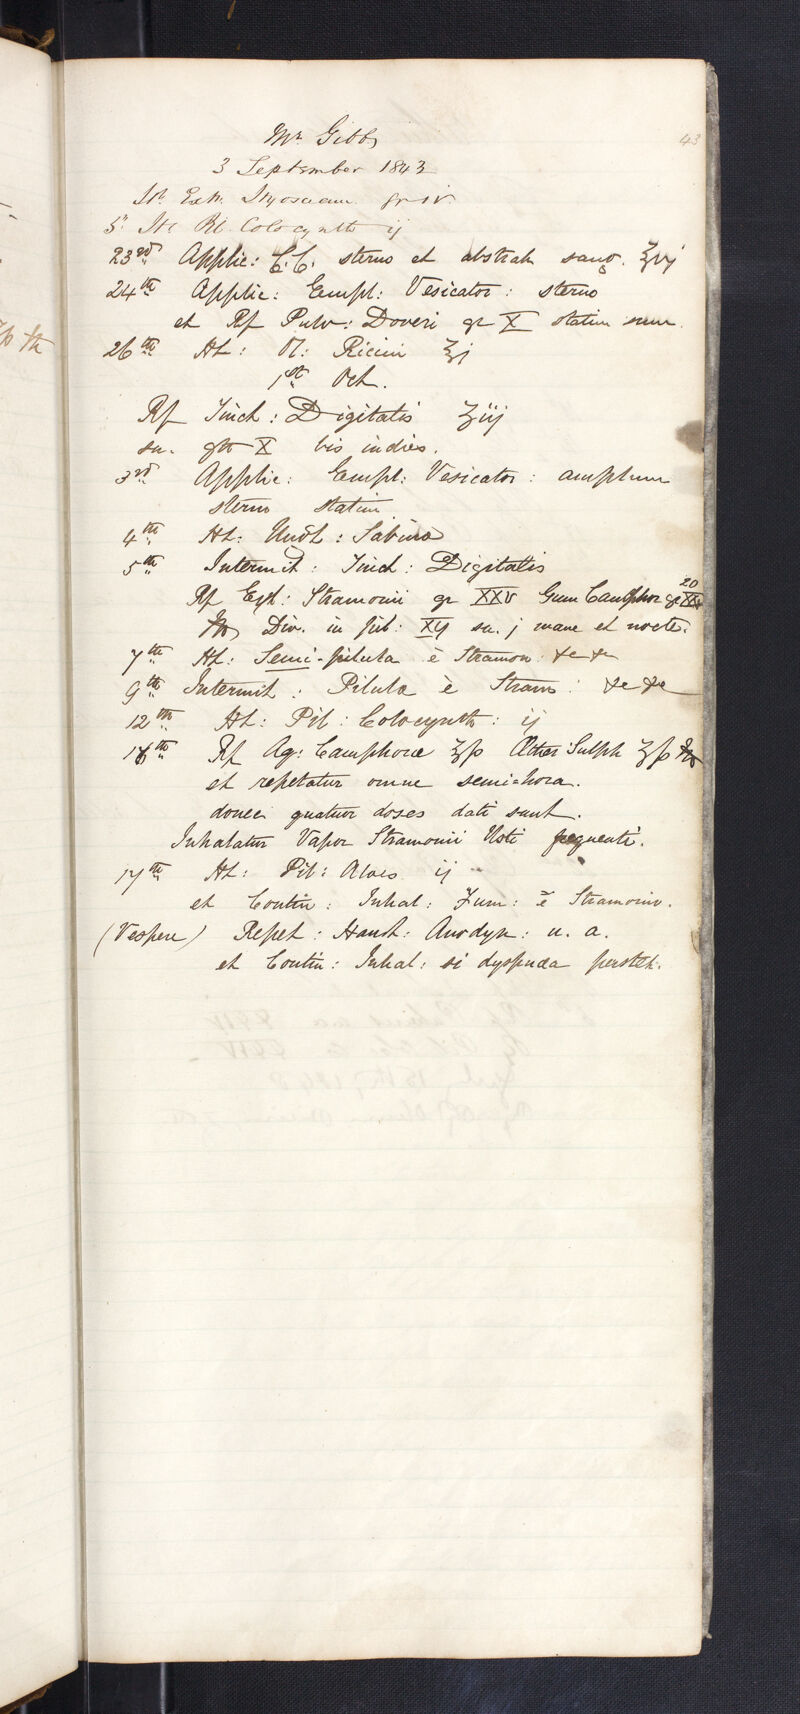 43
Mr. Gibbs
3 September 1843
Ht. Extr. Hyosciam. gr iv.
5" Ht Pil. Colocynth ij
23rd Applic: C.C. sterno et abstrah sang. ℥vj
24th Applic: Empl: Vesicator: sterno
et Rf Pulv: Doveri gr X statim sum.
26th Ht: Ol: Ricini ℥j
1st Oct.
Rf Tinct: Digitalis ʒiij
su. gtt X bis indies.
3rd Applic: Empl: Vesicator: amplum
sterno statim
4th Ht: Ung: Sabina
5th Intermit: Tinct: Digitalis
Rf Ext: Stramonii gr XXV Gum Camphor gr 20
Div. in pil: XIJ su. j mane et nocte.
7th Ht: Semi-pilula è Stramon: &c &c
9th Intermit: Pilula è Stram: &c &c
12th Ht: Pil: Colocynth: ij
16th Rf Aq: Camphorae ℥ſs Æther Sulph ʒſs
et repetatur omne semi-hora.
donec quatuor doses dati sunt.
Inhalatur Vapor Stramonii Usti frequenti.
17th Ht: Pil: Aloes ij
et Contin: Inhal: Fum: è Stramonio.
(Vespere) Repet: Haust: Anodyn: u. a.
et Contin: Inhal: si dyspnœa perstet.